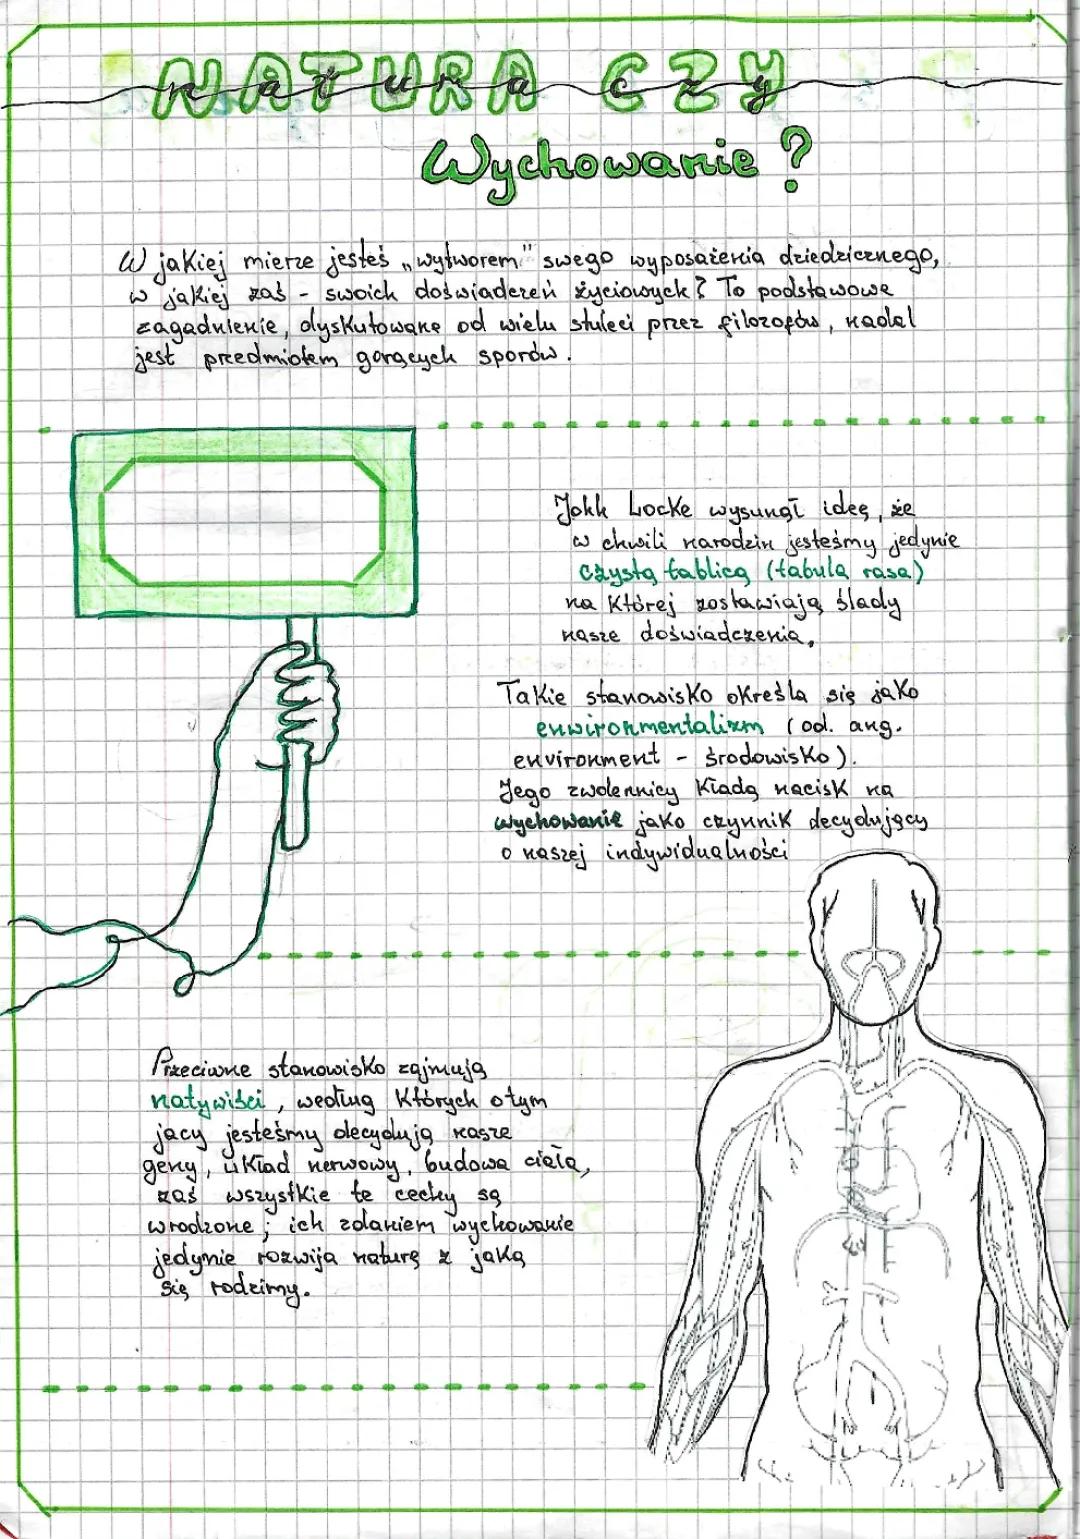 NATURA CZY
natura czy
Wychowanie?
W jakiej mierze jesteś „wytworem" swego wyposażenia dziedzicznego,
w jakiej zaś - swoich doświadczeń życiowych? To podstawowe
zagadnienie, dyskutowane od wielu stuleci przez filozofów, nadal
jest przedmiotem gorących sporów.
John Locke wysunął ideę, że
w chwili narodzin jesteśmy jedynie
czystą tablicą (tabula rasa)
na której zostawiają ślady
nasze doświadczenia.
Takie stanowisko określa się jako
enwironmentalizm (od. ang.
environment - środowisko).
Jego zwolennicy kładą nacisk na
wychowanie jako czynnik decydujący
o naszej indywidualności
Przeciwne stanowisko zajmują
natywiści, według których o tym
jacy jesteśmy decydują nasze
geny, układ nerwowy, budowa ciała,
zaś wszystkie te cechy są
wrodzone; ich zdaniem wychowanie
jedynie rozwija naturę z jaką
się rodzimy.